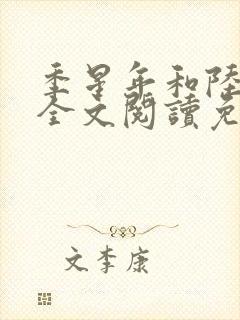 季星年和陸
全文閱讀免
文李康